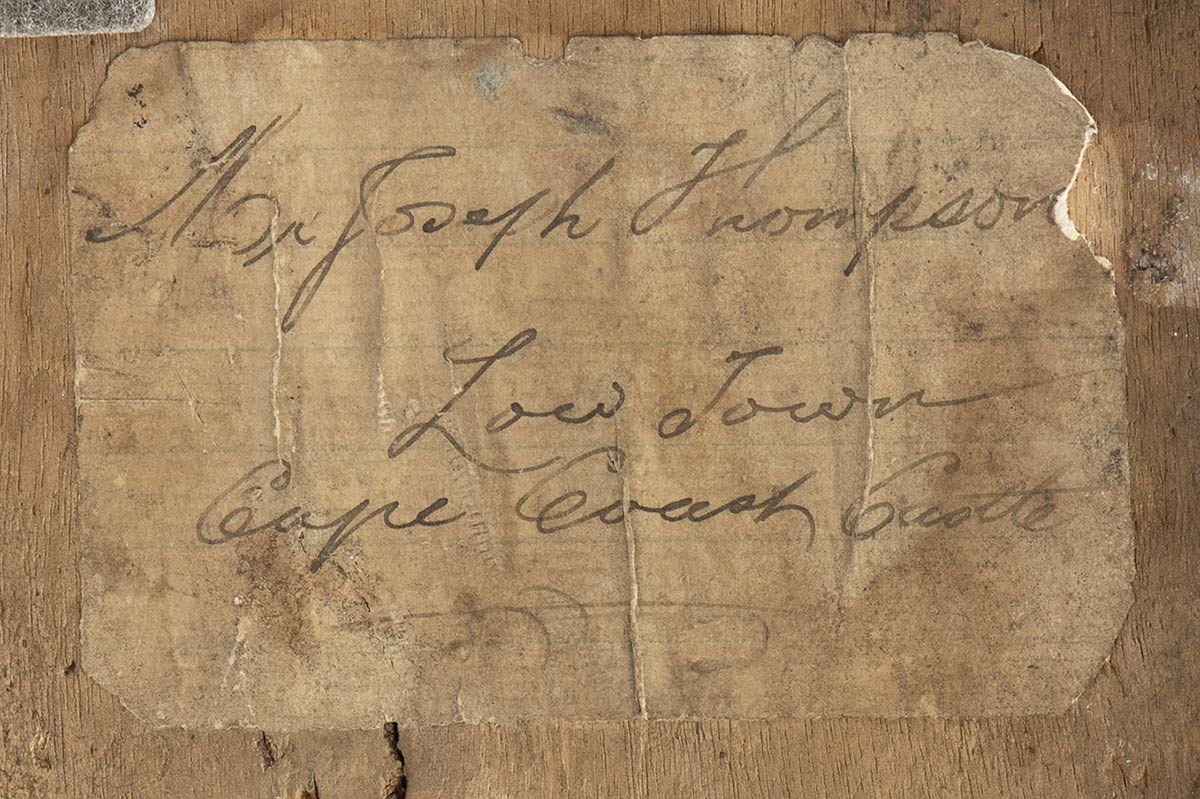 Mr Joseph Thompson
Low Town
Cape Coast Castle